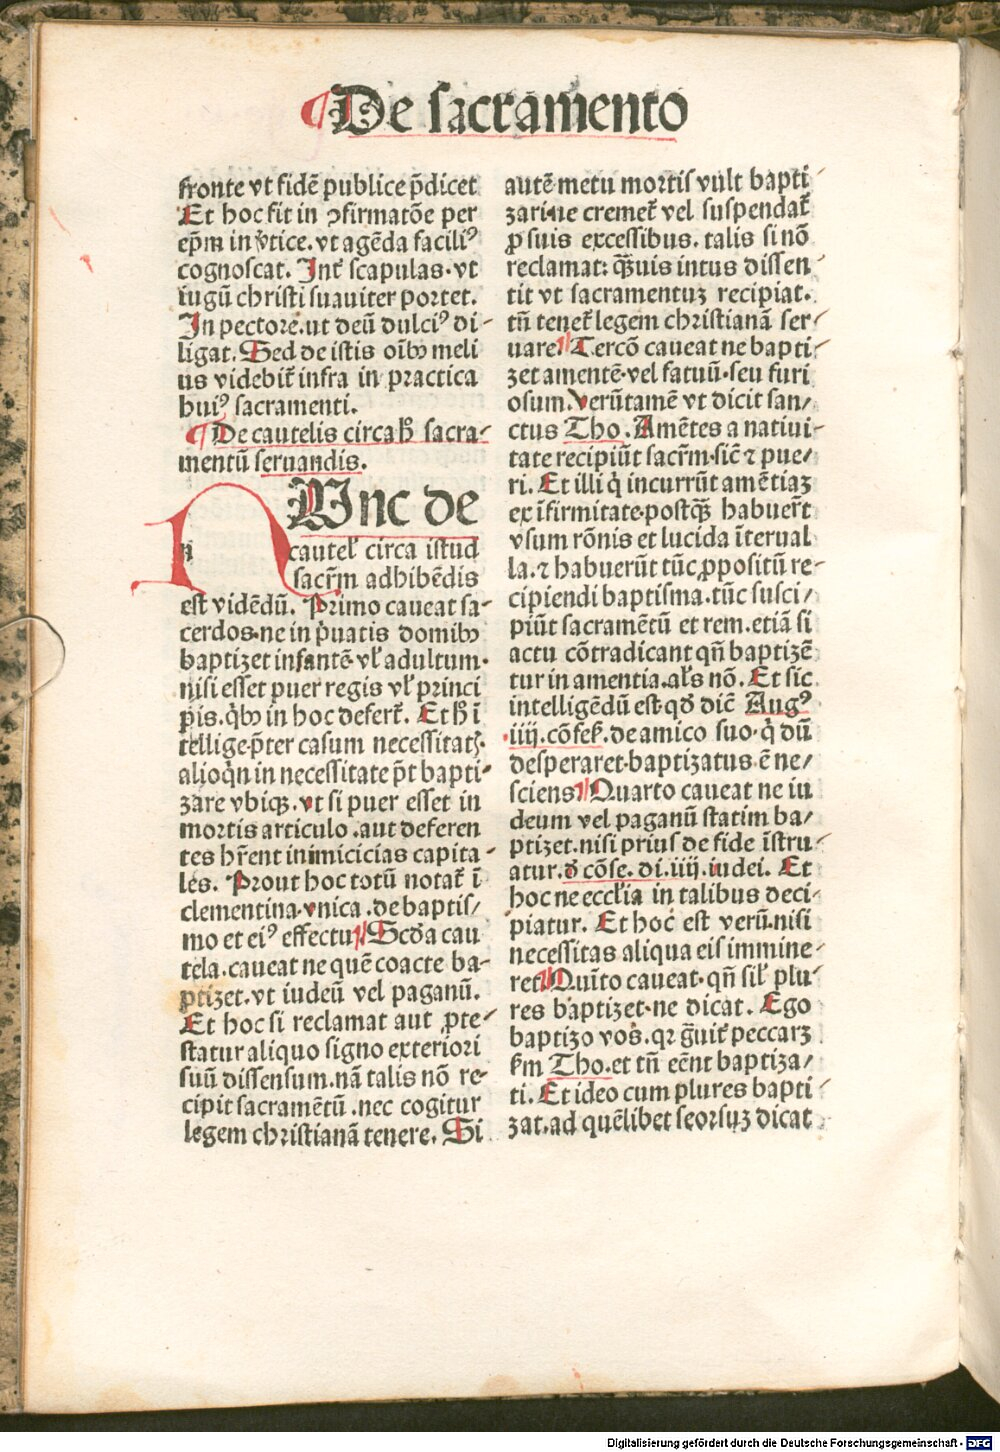 ¶De sacramento
fronte vt fidē publice p̄dicet
Et hoc fit in ꝯfirmatōe per
ep̄m in v̓tice. vt agēda faciliꝰ
cognoscat. Int̄ scapulas. vt
iugū christi suauiter portet.
In pectore. ut deū dulciꝰ di-
ligat. Sed de istis oībꝰ meli
us videbit̄ infra in practica
huiꝰ sacramenti.
¶De cautelis circa h̄ sacra-
mentū seruandis.
NUnc de
cautel̓ circa istud
sacr̄m adhibēdis
est vidēdū. Primo caueat sa-
cerdos. ne in p̓uatis domibꝰ
baptizet infantē vl̓ adultum.
nisi esset puer regis vl̓ princi
pis. q̓bꝰ in hoc defert̄. Et h̄ ī
tellige p̄ter casum necessitatꝭ.
alioq̓n in necessitate pt̄ bapti-
zare vbiqꝫ. vt si puer esset in
mortis articulo. aut deferen
tes hr̄ent inimicicias capita-
les. Prout hoc totū notat̄ ī
clementina. vnica. de baptis/
mo et eiꝰ effectu. ¶Scd̓a cau
tela. caueat ne quē coacte ba-
ptizet. vt iudeū vel paganū.
Et hoc si reclamat aut ꝓte-
statur aliquo signo exteriori
suū dissensum. nā talis nō re-
cipit sacramētū. nec cogitur
legem christianā tenere. Si
autē metu mortis vult bapti
zari ne cremet̄ vel suspendat̄
ꝓ suis excessibus. talis si nō
reclamat: q̄uis intus dissen
tit vt sacramentuꝫ recipiat.
tn̄ tenet̄ legem christianā ser/
uare. ¶Tercō caueat ne bapti-
zet amentē. vel fatuū. seu furi
osum. Verūtamē vt dicit san/
ctus Tho. Amētes a natiui-
tate recipiūt sacr̄m. sic̄ ꝛ pue-
ri. Et illi q̓ incurrūt amētiaꝫ
ex īfirmitate. postq̄ꝫ habuer̄t
vsum rōnis et lucida īterual
la. ꝛ habuerūt tūc ꝓpositū re-
cipiendi baptisma. tūc susci/
piūt sacramētū et rem. etiā si
actu cōtradicant qn̄ baptizē
tur in amentia. al̓s nō. Et sic
intelligēdū est. qd̓ dic̄ Augꝰ
.iiij. cōfes̄. de amico suo. q̓ dū
desperaret. baptizatus ē ne/
sciens. ¶Quarto caueat ne iu
deum vel paganū statim ba/
ptizet. nisi prius de fide īstru-
atur. d̓ cōse. di. iiij. iudei. Et
hoc ne eccl̓ia in talibus deci-
piatur. Et hoc est verū. nisi
necessitas aliqua eis immine-
ret. ¶Quīto caueat. qn̄ sil̓ plu
res baptizet. ne dicat. Ego
baptizo vos. qꝛ g̓uit̄ peccarꝫ
ẜm Tho. et tn̄ eēnt baptiza/
ti. Et ideo cum plures bapti
zat. ad quēlibet seorsuꝫ dicat
Digitalisierung gefördert durch die Deutsche Forschungsgemeinschaft - DFG